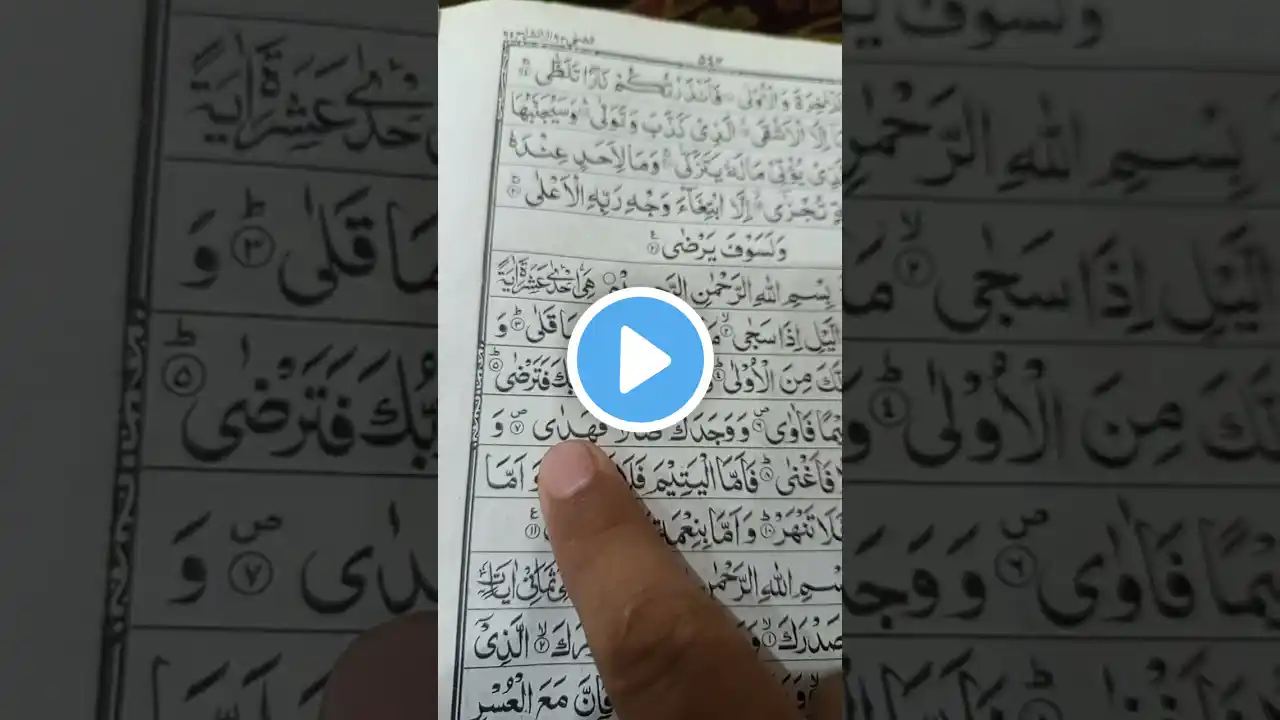 ٥٤٣
لْاٰخِرَةَ وَ الْاُوْلٰى فَاَنْذَرْتُكُمْ نَارًا تَلَظّٰى
اِلَّا الْاَشْقَى الَّذِىْ كَذَّبَ وَ تَوَلّٰى وَسَيُجَنَّبُهَا
يُؤْتِىْ مَالَهٗ يَتَزَكّٰى وَمَا لِاَحَدٍ عِنْدَهٗ
تُجْزٰٓى اِلَّا ابْتِغَآءَ وَجْهِ رَبِّهِ الْاَعْلٰى
وَلَسَوْفَ يَرْضٰى
بِسْمِ اللّٰهِ الرَّحْمٰنِ هِىَ اِحْدٰى عَشْرَةَ اٰيَةً
الَّيْلِ اِذَا سَجٰى ٢ قَلٰى ٣ وَ
لَكَ مِنَ الْاُوْلٰى ٤ فَتَرْضٰى ٥
فَاٰوٰى ٦ وَوَجَدَكَ ضَآلًّا فَهَدٰى ٧ وَ
فَاَغْنٰى ٨ فَاَمَّا الْيَتِيْمَ فَلَا وَ اَمَّا
فَلَا تَنْهَرْ ١٠ وَ اَمَّا بِنِعْمَةِ ١١
بِسْمِ اللّٰهِ الرَّحْمٰنِ ثَمَانِىْ اٰيَاتٍ
صَدْرَكَ ١ ٢ الَّذِىْٓ
فَاِنَّ مَعَ الْعُسْرِ